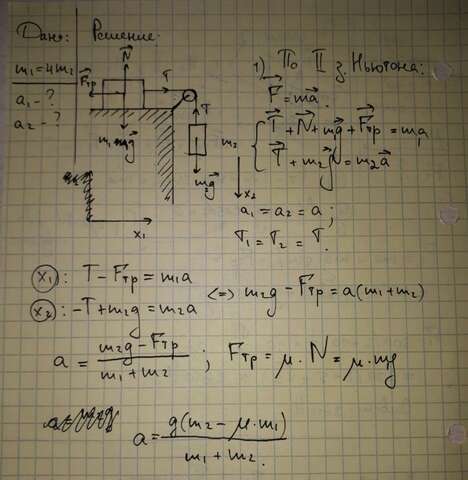 Дано: Решение:
m₁=4m₂
a₁-?
a₂-?
N⃗
F⃗тр
T
T
m₁g⃗
m₂
m₂g⃗
x₁
x₂
1) По II з. Ньютона:
F⃗=ma⃗
T⃗+N⃗+m₁g⃗+F⃗тр=ma⃗₁
T⃗+m₂g⃗=m₂a⃗
a₁=a₂=a;
T₁=T₂=T.
x₁: T-Fтр=m₁a
x₂: -T+m₂g=m₂a <=> m₂g-Fтр=a(m₁+m₂)
a=(m₂g-Fтр)/(m₁+m₂); Fтр=μ·N=μ·m₁g
a=g(m₂-μ·m₁)/(m₁+m₂).